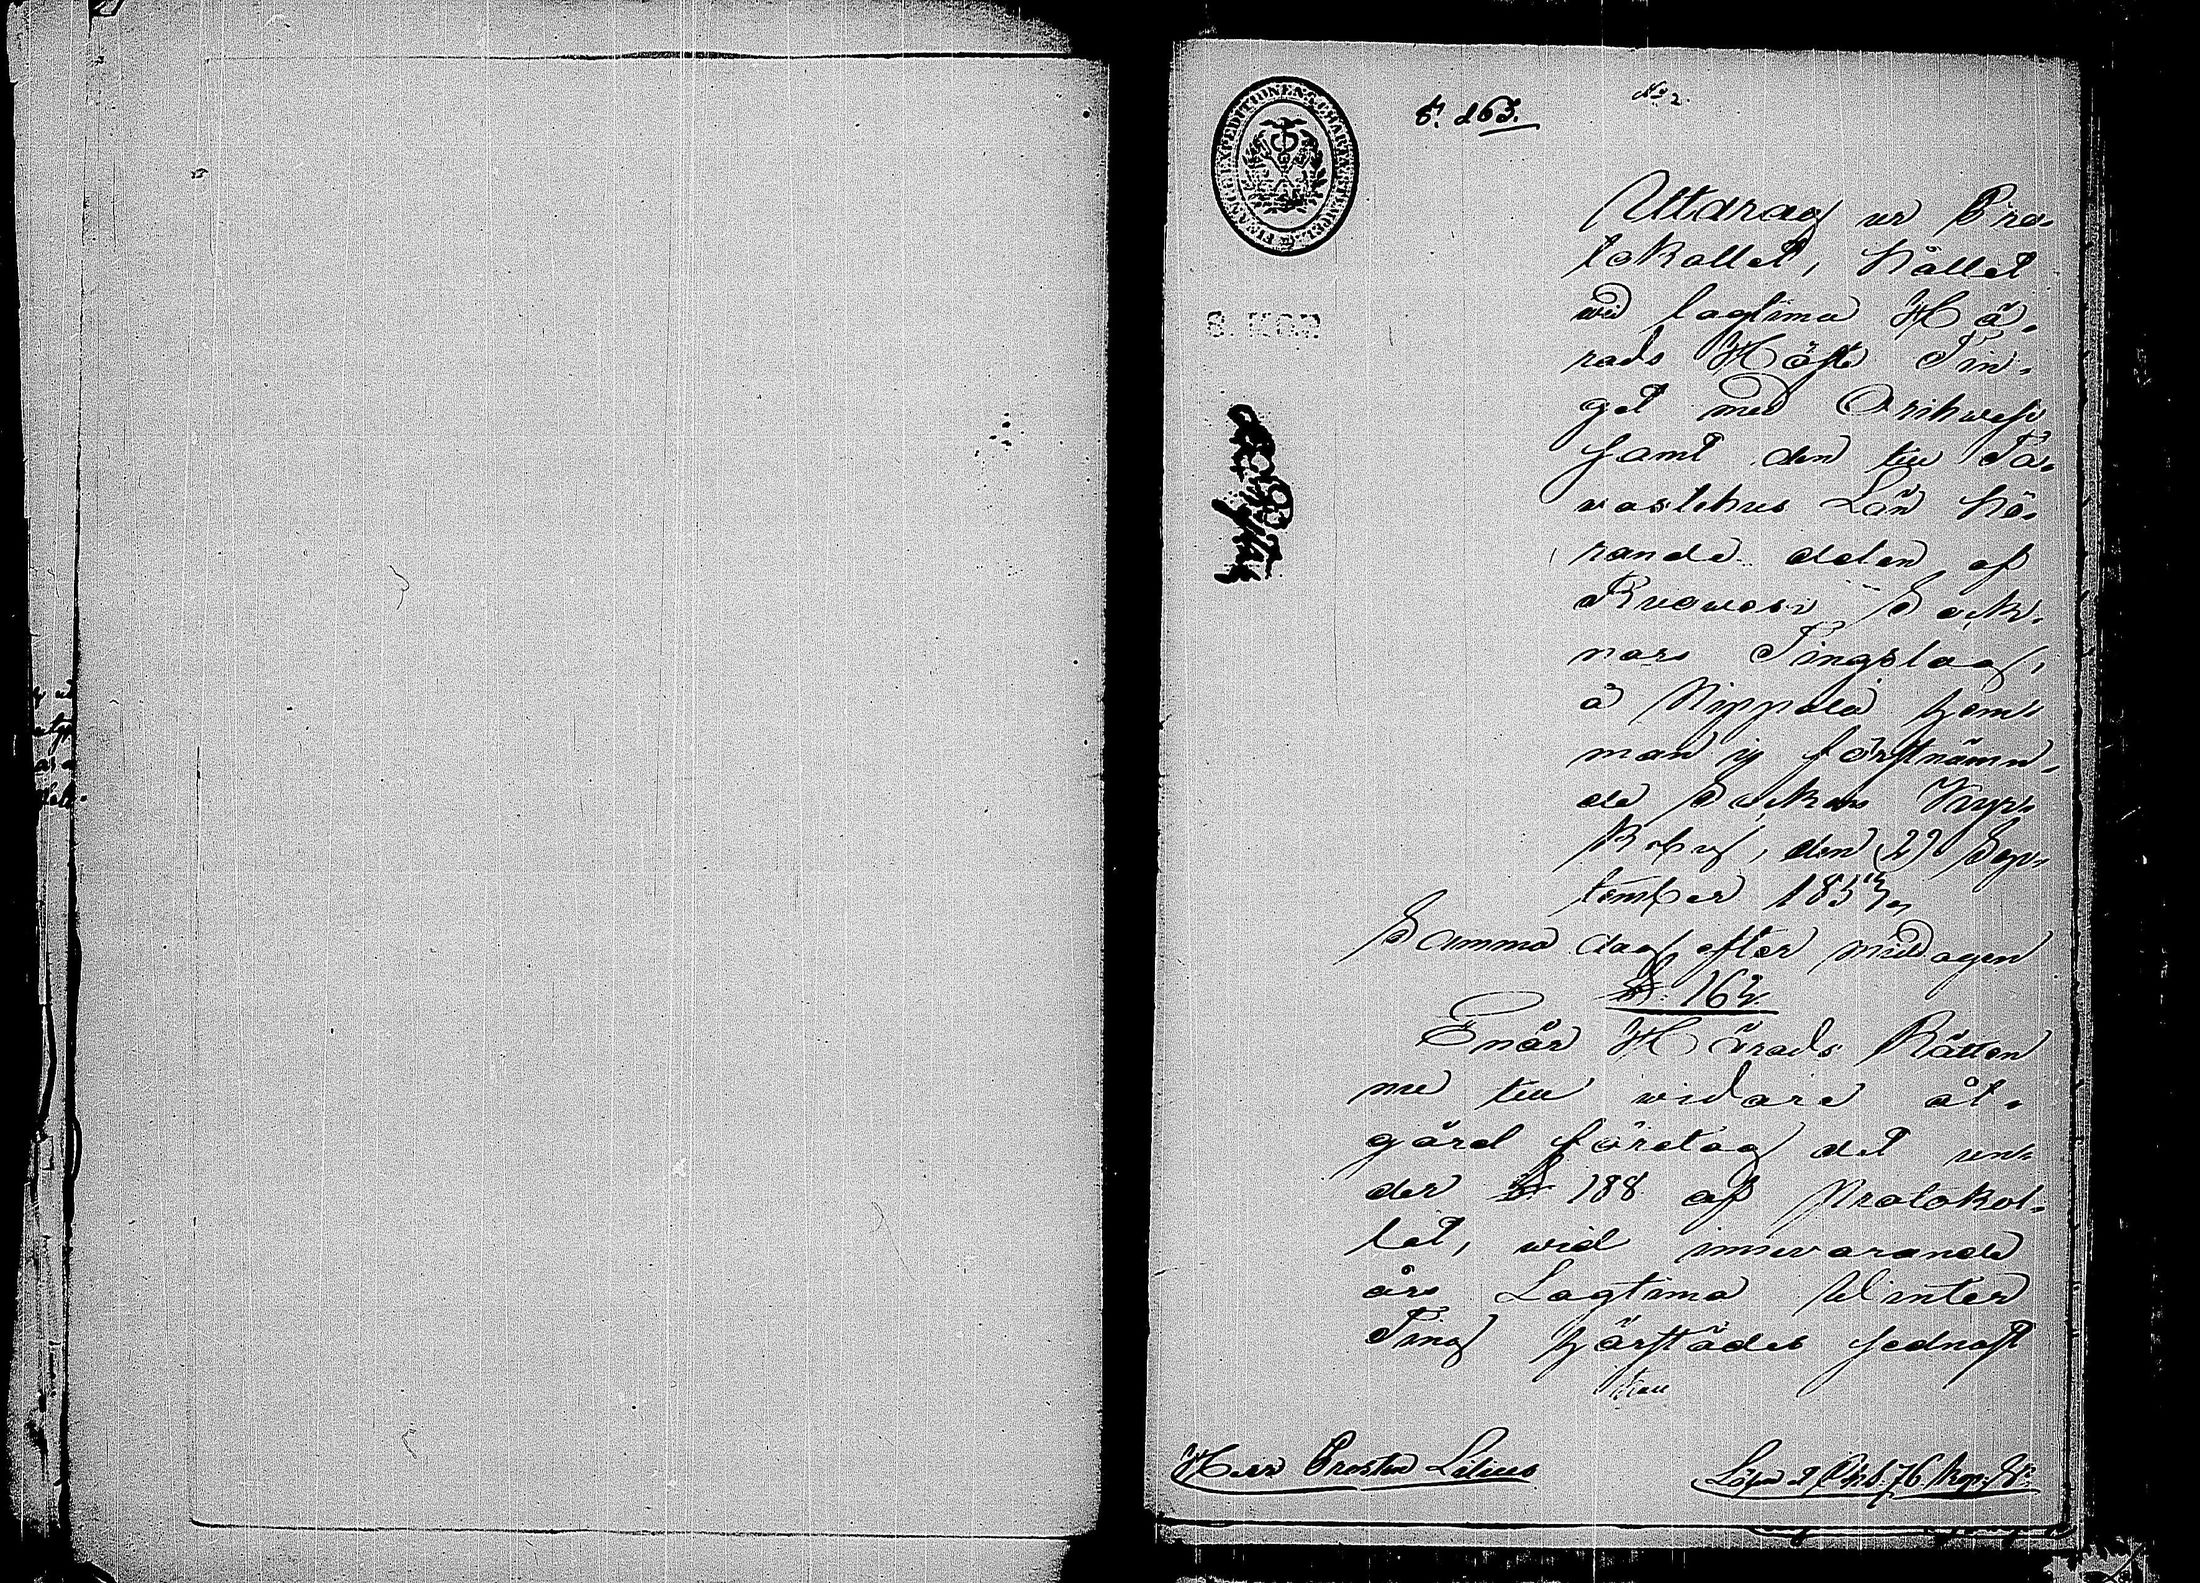 No 2.
§. 163.
FINANCE EXPEDITIONENS CHARTÆ STEMPEL
8. KOP.
Utdrag ur Pro-
tokollet, hållet
wid lagtima Hä-
rads Höste Tin-
get med Orihwesi
samt den till Ta-
vastehus Län hö-
rande delen af
Ruowesi Sock-
nars Tingslag,
å Nippala hem-
man i förstnämn-
de Sockens Kyr-
koby, den 22 Sep-
tember 185
Samma dag efter middagen
§. 162.
Enär Härads Rätten
nu till widare åt-
gärd företog det un-
der § 188 af Protokol-
let, wid innevarande
års Lagtima Winter
Ting härstädes sednast
Herr Prosten Lilius
Lösen 2 Rub. 76 kop. S:r